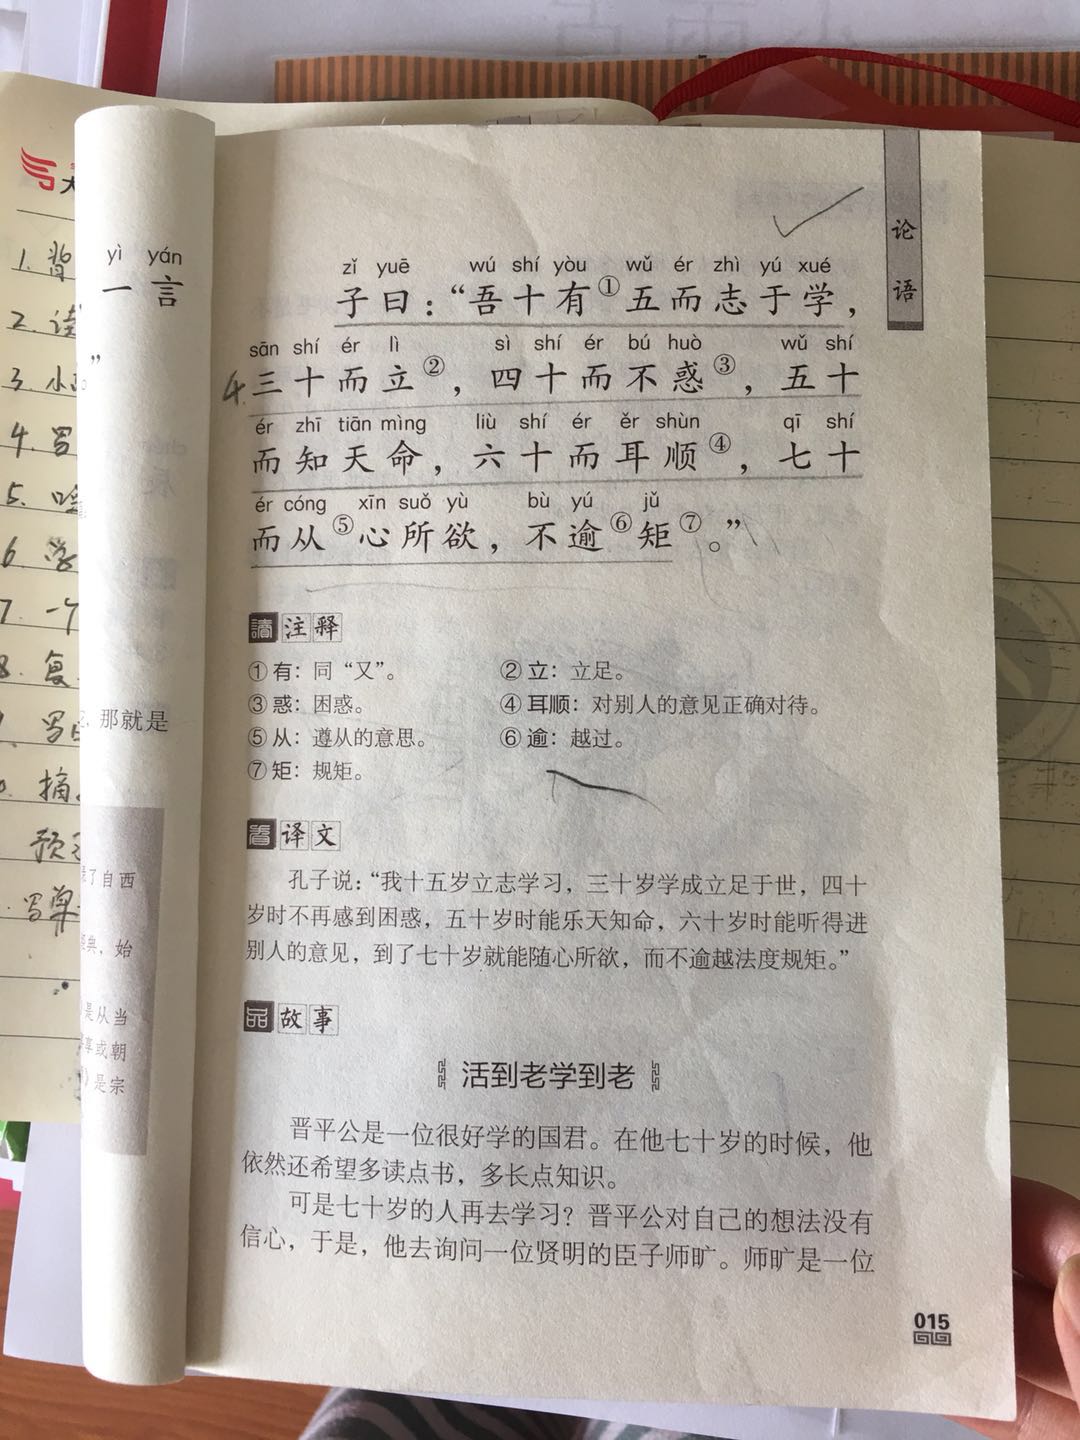 论
语
zǐ yuē wú shí yòu wǔ ér zhì yú xué
子曰：“吾十有①五而志于学，
sān shí ér lì sì shí ér bú huò wǔ shí
4.三十而立②，四十而不惑③，五十
ér zhī tiān mìng liù shí ér ěr shùn qī shí
而知天命，六十而耳顺④，七十
ér cóng xīn suǒ yù bù yú jǔ
而从⑤心所欲，不逾⑥矩⑦。”
讀注释
①有：同“又”。 ②立：立足。
③惑：困惑。 ④耳顺：对别人的意见正确对待。
⑤从：遵从的意思。 ⑥逾：越过。
⑦矩：规矩。
看译文
孔子说：“我十五岁立志学习，三十岁学成立足于世，四十
岁时不再感到困惑，五十岁时能乐天知命，六十岁时能听得进
别人的意见，到了七十岁就能随心所欲，而不逾越法度规矩。”
品故事
活到老学到老
晋平公是一位很好学的国君。在他七十岁的时候，他
依然还希望多读点书，多长点知识。
可是七十岁的人再去学习？晋平公对自己的想法没有
信心，于是，他去询问一位贤明的臣子师旷。师旷是一位
015
yì yán
一言
”
那就是
了自西
典，始
是从当
享或朝
》是宗
1.背
2.读
3.小
4.写
5.
6.学
7.一个
8.复
写
摘
预习
写